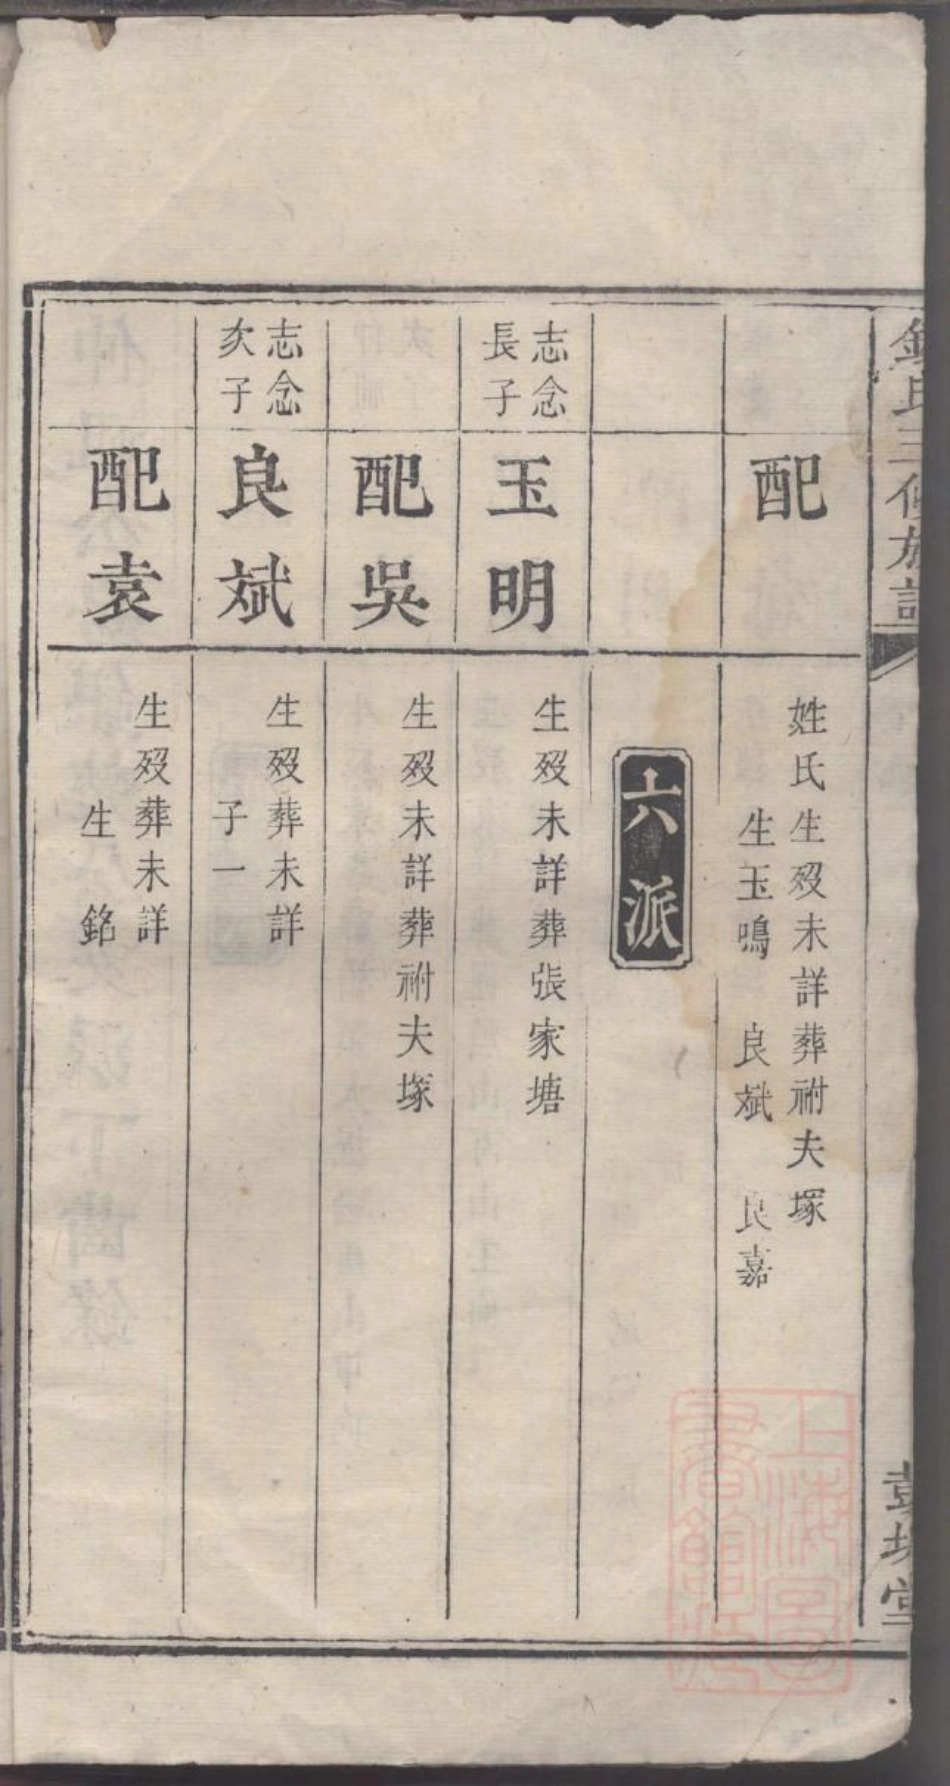 氏三修族譜
配
姓氏生歿未詳葬祔夫塚
生玉鳴 良斌 良嘉
六派
志念
長子
玉明
生歿未詳葬張家塘
配吳
生歿未詳葬祔夫塚
志念
次子
良斌
生歿葬未詳
子一
配袁
生歿葬未詳
生 銘
上海圖
書館藏